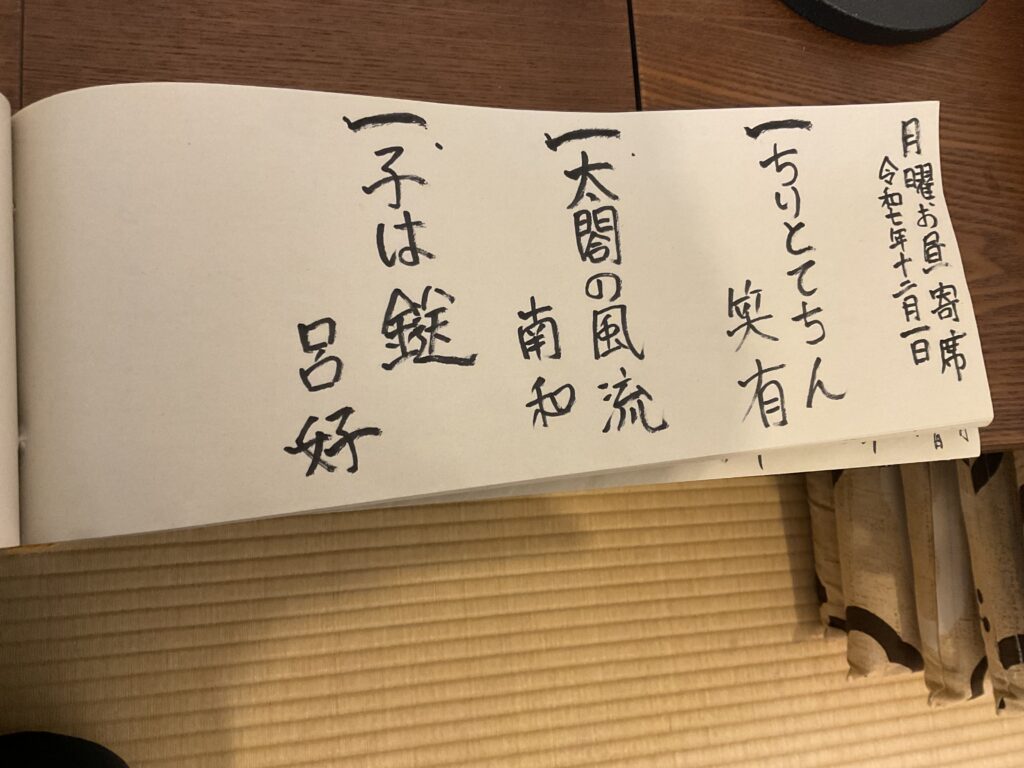 月曜お昼寄席
令和七年十二月一日
一ちりとてちん
笑有
一太閤の風流
南和
一子は鎹
呂好